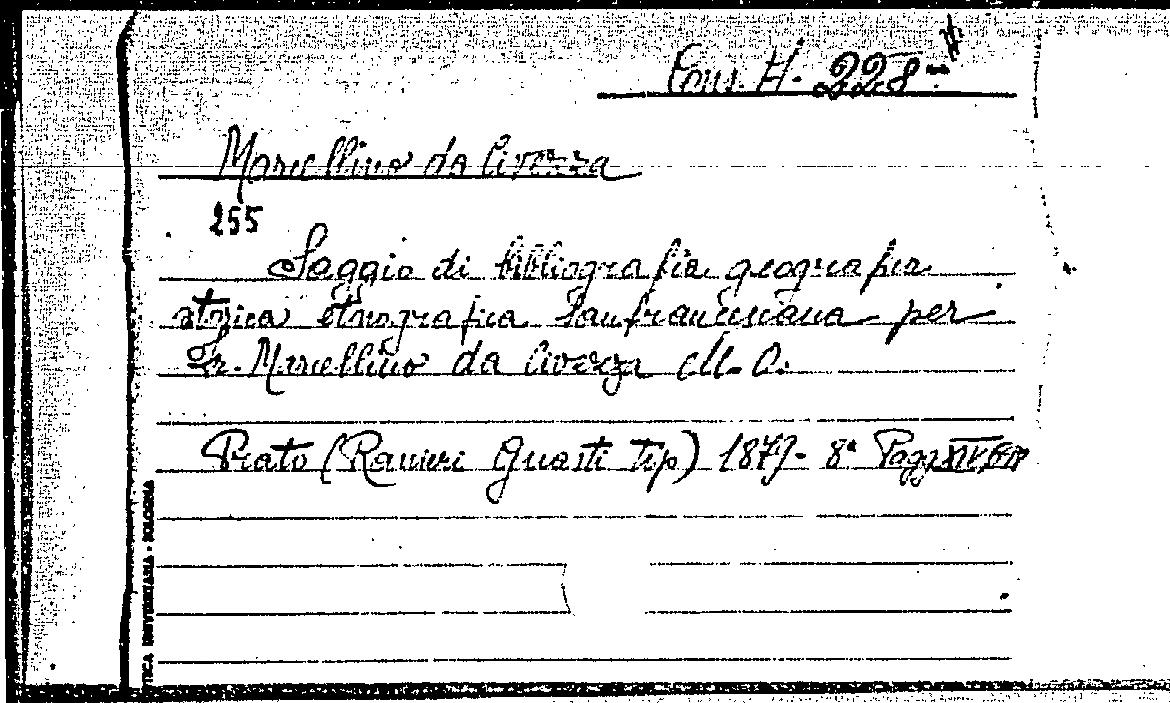 Cons. H. 228
Marcellino da Civezza
255
Saggio di bibliografia geografica
storica etnografica Sanfrancescana per
Fr. Marcellino da Civezza M. O.
Prato (Ranieri Guasti tip) 1879- 8° Pagg
TECA UNIVERSITARIA - BOLOGNA